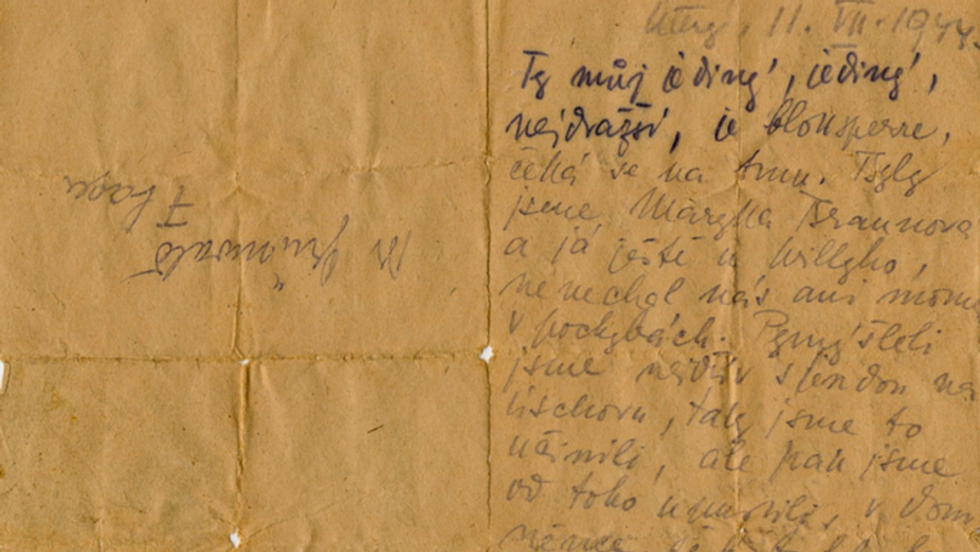 Úterý, 11. VII. 1944.
Ty můj jediný, jediný,
nejdražší, je blocksperre,
čeká se na tmu. Byly
jsme Marylka Braunová
a já ještě u Willyho,
nenechal nás ani mom
v pochybách. Vymýšleli
jsme nejdřív s Jendou na
tischoru, taky jsme to
učinili, ale pak jsme
od toho upustili, v dom
Dr Grünwald